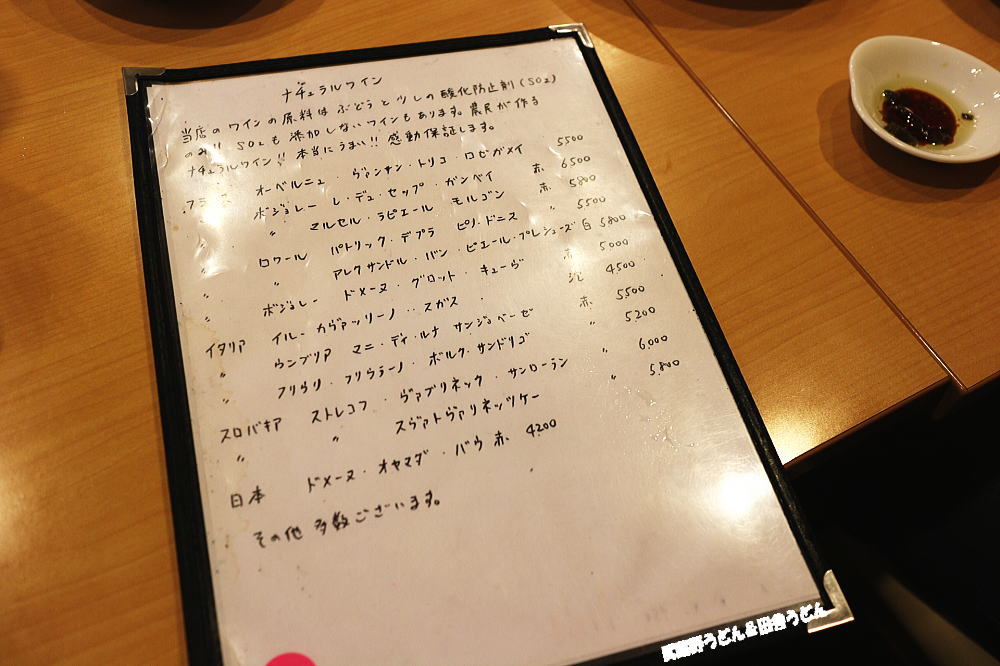 ナチュラルワイン
当店のワインの原料はぶどうと少しの酸化防止剤(SO2)
のみ!! SO2も添加しないワインもあります。農民が作る
ナチュラルワイン!! 本当にうまい!! 感動保証します。
・フランス オーベルニュ・ヴァンサン・トリコ・ロゼガメイ 5500
〃 ボジョレー レ・デュ・セップ・ガンベイ 赤 6500
〃 〃 マルセル・ラピエール モルゴン 赤 5800
〃 ロワール パトリック・デプラ ピノ・ドニス 〃 5500
〃 〃 アレクサンドル・バン・ピエール・プレシューズ 白 5800
〃 ボジョレー ドメーヌ・グロット・キューヴ 赤 5000
イタリア イル・カヴァッリーノ・・スガス・ 泡 4500
〃 ウンブリア マニ・ディ・ルナ サンジョベーゼ 赤 5500
〃 フリウリ・フリウラーノ・ボルク・サンドリゴ 〃 5200
スロバキア ストレコフ・ヴァブリネック・サンローラン 〃 6000
〃 〃 スヴァトヴァリネッツケー 〃 5,800
日本 ドメーヌ・オヤマダ・バウ 赤 4200
その他 多数ございます。
武蔵野うどん&田舎うどん